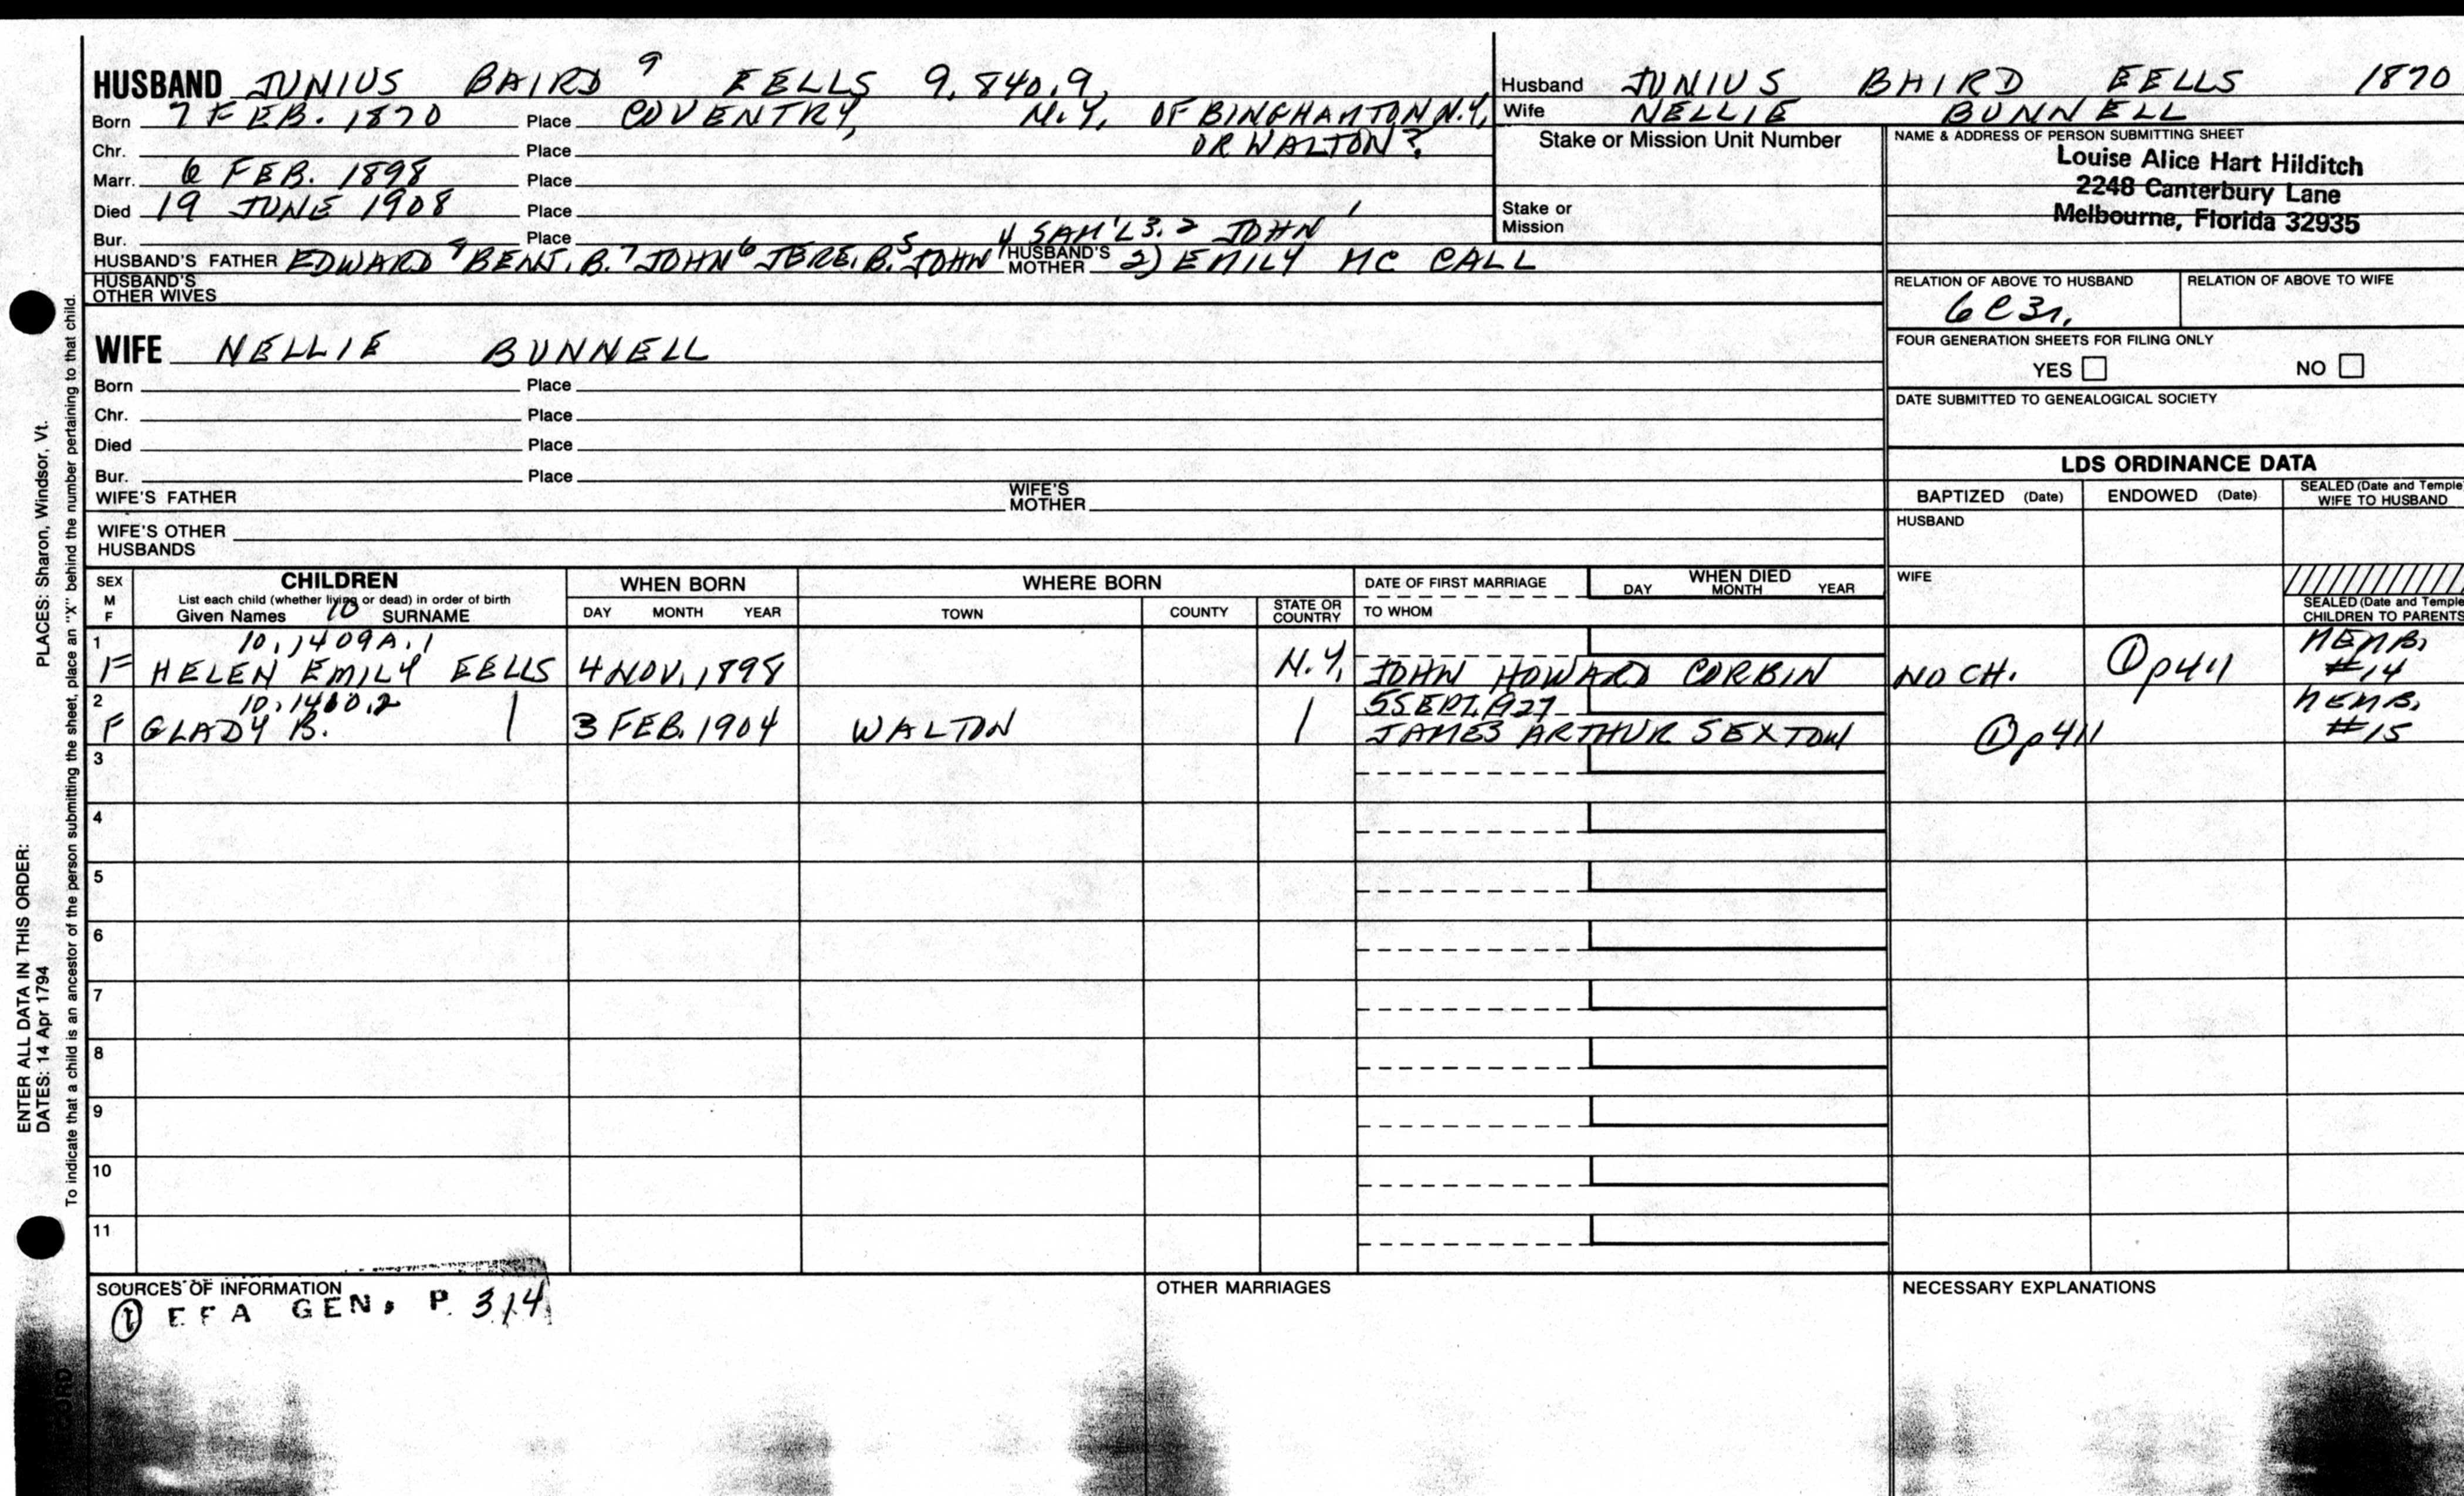 HUSBAND JUNIUS BAIRD 9 EELLS 9,840.9,
Born 7 FEB. 1870 Place COVENTRY, N.Y. OF BINGHAMTON N.Y,
Chr. Place OR WALTON?
Marr. 6 FEB. 1898 Place
Died 19 JUNE 1908 Place
Bur. Place 4 SAM'L 3. 2 JOHN 1
HUSBAND'S FATHER EDWARD 8 BENJ. B. 7 JOHN 6 JERE. B. 5 JOHN HUSBAND'S MOTHER 2) EMILY MC CALL
HUSBAND'S OTHER WIVES
WIFE NELLIE BUNNELL
Born Place
Chr. Place
Died Place
Bur. Place
WIFE'S FATHER WIFE'S MOTHER
WIFE'S OTHER HUSBANDS
Husband JUNIUS BAIRD EELLS 1870
Wife NELLIE BUNNELL
Stake or Mission Unit Number
Stake or Mission
NAME & ADDRESS OF PERSON SUBMITTING SHEET
Louise Alice Hart Hilditch
2248 Canterbury Lane
Melbourne, Florida 32935
RELATION OF ABOVE TO HUSBAND RELATION OF ABOVE TO WIFE
6C3r,
FOUR GENERATION SHEETS FOR FILING ONLY
YES NO
DATE SUBMITTED TO GENEALOGICAL SOCIETY
LDS ORDINANCE DATA
BAPTIZED (Date) ENDOWED (Date) SEALED (Date and Temple) WIFE TO HUSBAND
HUSBAND
WIFE
SEALED (Date and Temple) CHILDREN TO PARENTS
SEX M F CHILDREN WHEN BORN WHERE BORN DATE OF FIRST MARRIAGE WHEN DIED
List each child (whether living or dead) in order of birth DAY MONTH YEAR
Given Names 10 SURNAME DAY MONTH YEAR TOWN COUNTY STATE OR COUNTRY TO WHOM
1 10,1409A.1 MEMB,
F HELEN EMILY EELLS 4 NOV. 1898 N.Y, JOHN HOWARD CORBIN NO CH. ① p411 #14
2 10,1410.2 5 SEPT. 1927 MEMB,
F GLADY B. | 3 FEB. 1904 WALTON | JAMES ARTHUR SEXTON ① p411 #15
3
4
5
6
7
8
9
10
11
SOURCES OF INFORMATION OTHER MARRIAGES NECESSARY EXPLANATIONS
① EFA GEN, P. 314
ENTER ALL DATA IN THIS ORDER:
DATES: 14 Apr 1794 PLACES: Sharon, Windsor, Vt.
To indicate that a child is an ancestor of the person submitting the sheet, place an "X" behind the number pertaining to that child.